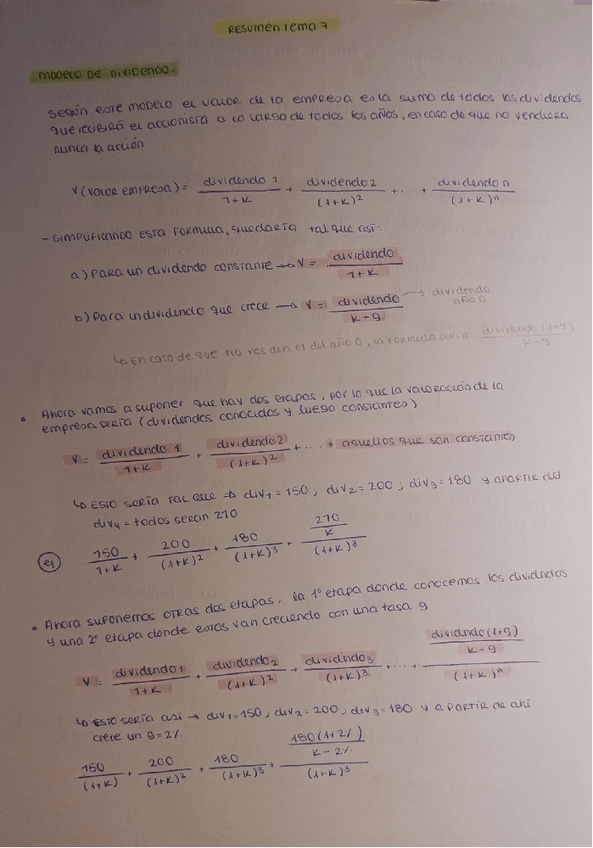 RESUMEN TEMA 7
MODELO DE DIVIDENDO.
según este modelo el valor de la empresa es la suma de todos los dividendos
que recibirá el accionista a lo largo de todos los años, en caso de que no vendiera
nunca la acción
V (VALOR EMPRESA) = dividendo 1 / 1+K + dividendo 2 / (1+K)² + ... + dividendo n / (1+K)ⁿ
- SIMPLIFICANDO ESTA FORMULA, quedaría tal que así:
a) Para un dividendo constante → V = dividendo / 1+K
b) Para un dividendo que crece → V = dividendo / K-g → dividendo año 0
↳ En caso de que no nos den el del año 0, la formula sería dividendo (1+g) / K-g
• Ahora vamos a suponer que hay dos etapas, por lo que la valoración de la
empresa sería (dividendos conocidos y luego constantes)
V = dividendo 1 / 1+K + dividendo 2 / (1+K)² + ... + aquellos que son constantes
↳ ESTO sería tal que ⇒ div₁ = 150, div₂ = 200; div₃ = 180 y a partir del
div₄ = todos seran 210
ej 150 / 1+K + 200 / (1+K)² + 180 / (1+K)³ + 210 / K / (1+K)³
• Ahora suponemos OTRAS dos etapas, la 1º etapa donde conocemos los dividendos
y una 2º etapa donde estos van creciendo con una tasa g
V = dividendo 1 / 1+K + dividendo 2 / (1+K)² + dividendo 3 / (1+K)³ + ... + dividendo (1+g) / K-g / (1+K)ⁿ
↳ ESTO sería así → div₁ = 150, div₂ = 200, div₃ = 180 y a partir de ahí
crece un g = 2%
150 / (1+K) + 200 / (1+K)² + 180 / (1+K)³ + 180 (1+2%) / K-2% / (1+K)³